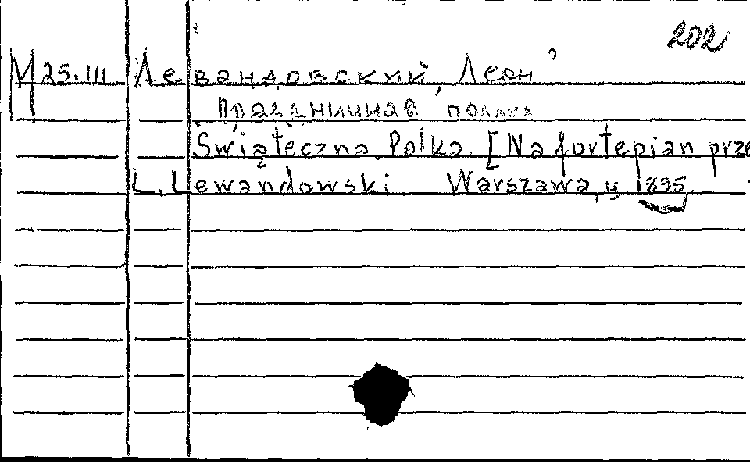 202
М 25.III Левандовский, Леон
Праздничная полька
Świąteczna Polka. [Na fortepian prze
L. Lewandowski Warszawa, 1895